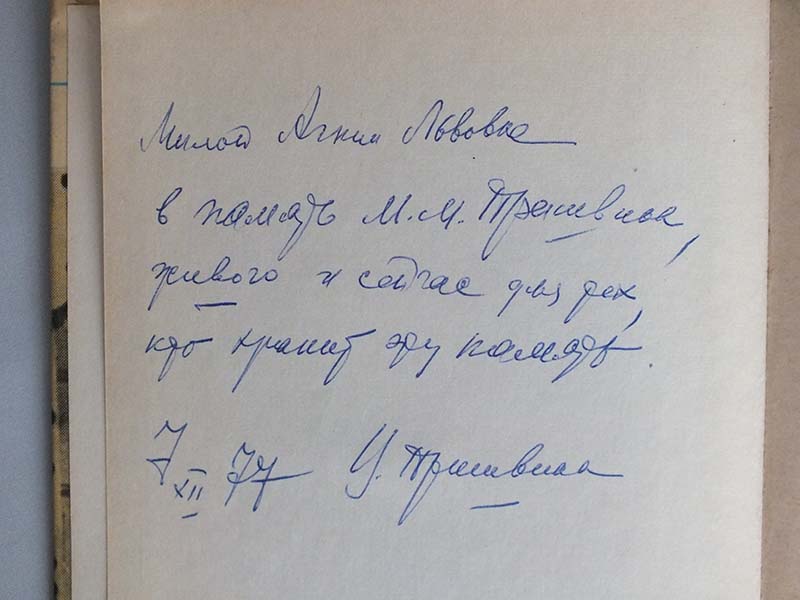 Милой Агнии Львовне
в память М.М. Пришвина,
живого и сейчас для тех,
кто хранит эту память.
7 XII 77 Пришвина